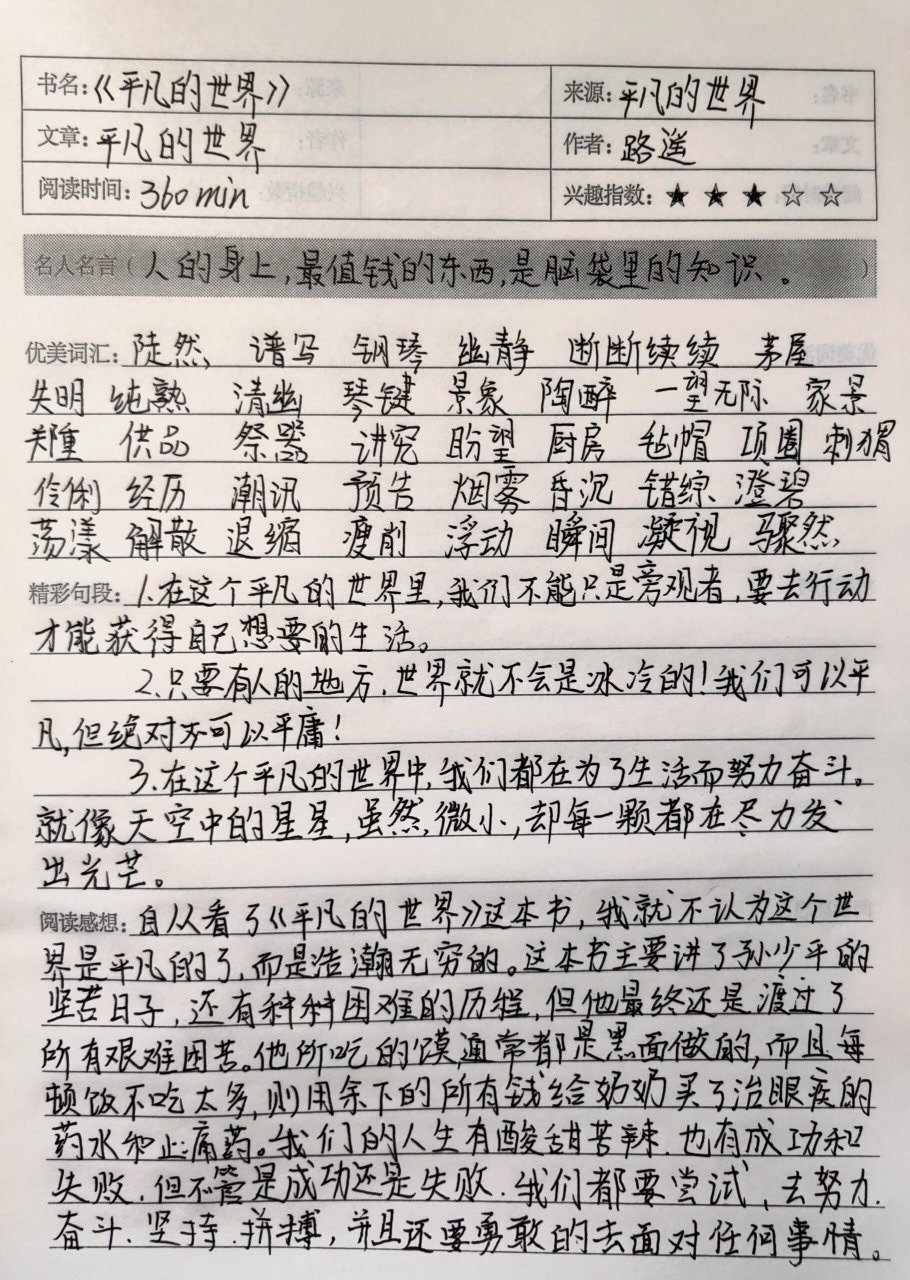 书名:《平凡的世界》 来源:平凡的世界
文章:平凡的世界 作者:路遥
阅读时间:360min 兴趣指数:★★★☆☆
名人名言(人的身上,最值钱的东西,是脑袋里的知识。)
优美词汇:陡然 谱写 钢琴 幽静 断断续续 茅屋
失明 纯熟 清幽 琴键 景象 陶醉 一望无际 家景
郑重 供品 祭器 讲究 盼望 厨房 毡帽 项圈 刺猬
伶俐 经历 潮汛 预告 烟雾 昏沉 错综 澄碧
荡漾 解散 退缩 瘦削 浮动 瞬间 凝视 骤然
精彩句段:1.在这个平凡的世界里,我们不能只是旁观者,要去行动
才能获得自己想要的生活。
2.只要有人的地方,世界就不会是冰冷的!我们可以平
凡,但绝对不可以平庸!
3.在这个平凡的世界中,我们都在为了生活而努力奋斗。
就像天空中的星星,虽然,微小,却每一颗都在尽力发
出光芒。
阅读感想:自从看了《平凡的世界》这本书,我就不认为这个世
界是平凡的了,而是浩瀚无穷的。这本书主要讲了孙少平的
坚苦日子,还有种种困难的历程,但他最终还是渡过了
所有艰难困苦。他所吃的馍通常都是黑面做的,而且每
顿饭不吃太多,则用余下的所有钱给奶奶买了治眼疾的
药水和止痛药。我们的人生有酸甜苦辣,也有成功和
失败,但不管是成功还是失败,我们都要尝试,去努力,
奋斗,坚持,拼搏,并且还要勇敢的去面对任何事情。